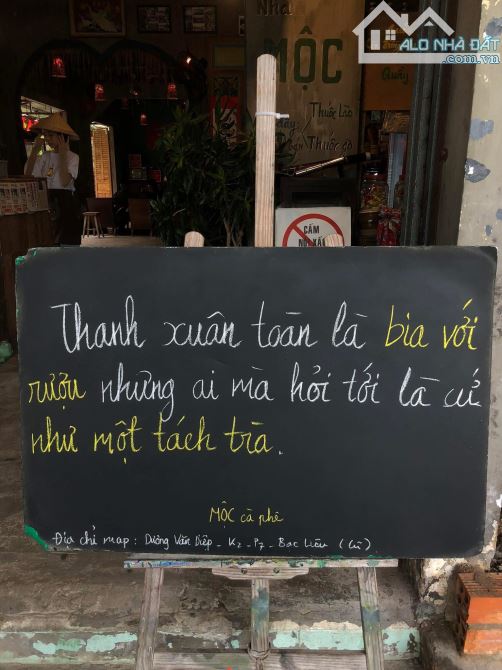 ALO NHÀ ĐẤT
.com.vn
Nhà
MỘC
Quầy
Thuốc Lào
Thuốc Gò
CẤM
NÓI XẤU
Thanh xuân toàn là bia với
rượu nhưng ai mà hỏi tới là cứ
như một tách trà.
MỘC cà phê
Địa chỉ map: Dương Văn Diệp - K2 - P7 - Bạc Liêu (cũ)